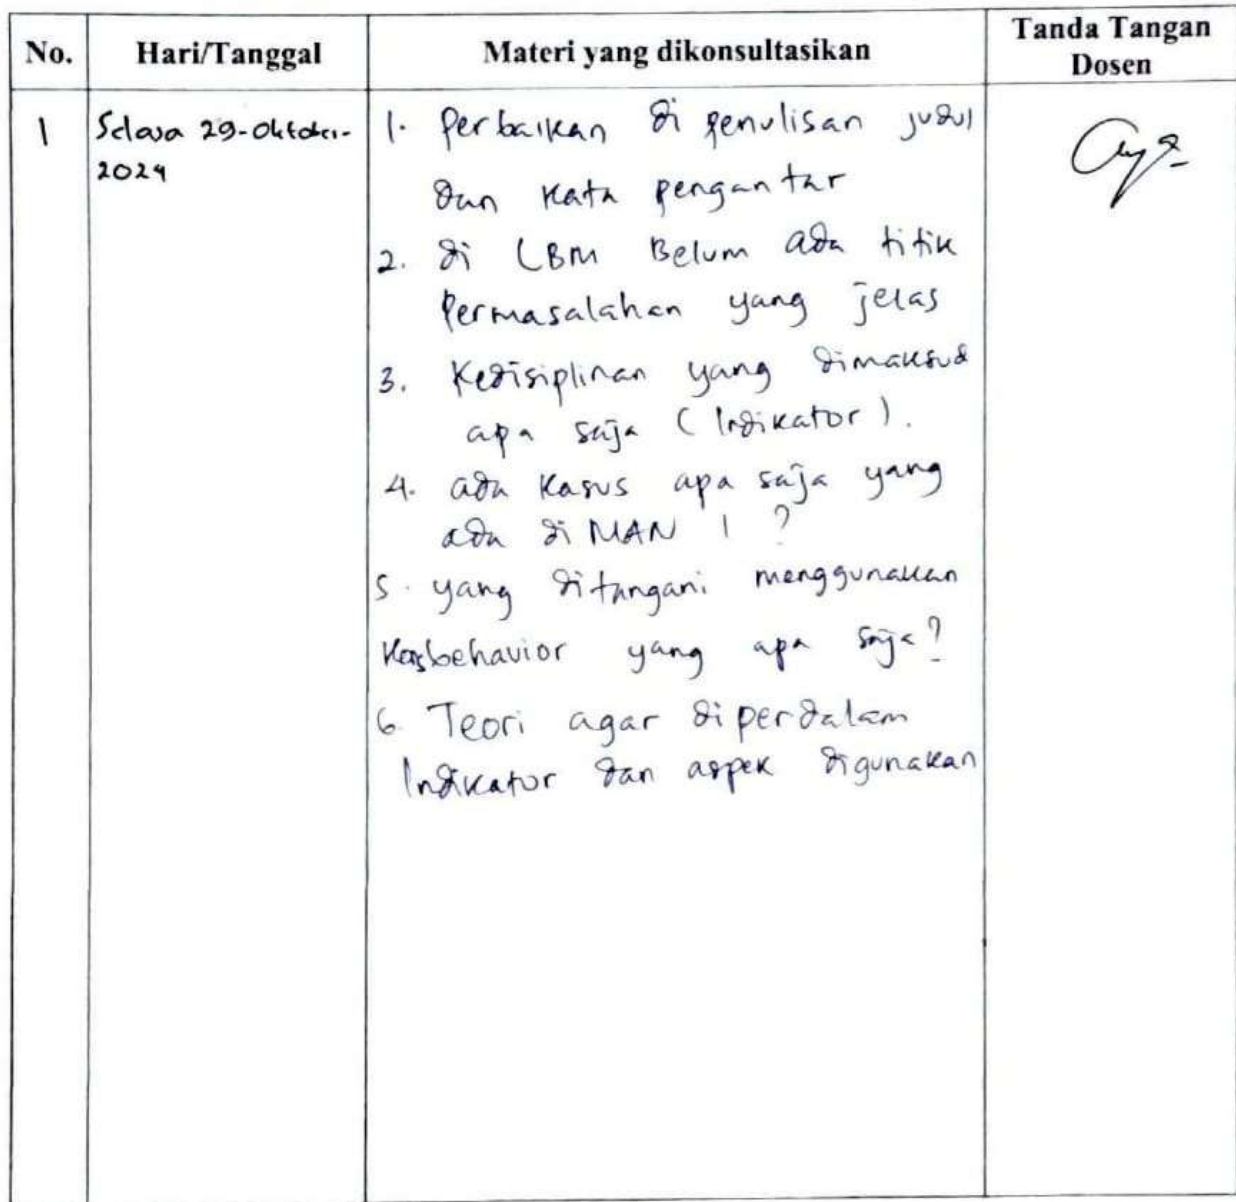 No. Hari/Tanggal Materi yang dikonsultasikan Tanda Tangan
Dosen
1 Selasa 29-Oktober-
2024
1. Perbaikan di penulisan judul
dan kata pengantar
2. di LBM Belum ada titik
Permasalahan yang jelas
3. Kedisiplinan yang dimaksud
apa saja (Indikator).
4. ada kasus apa saja yang
ada di MAN 1 ?
5. yang ditangani menggunakan
behavior yang apa saja?
6. Teori agar diperdalam
Indikator dan aspek digunakan